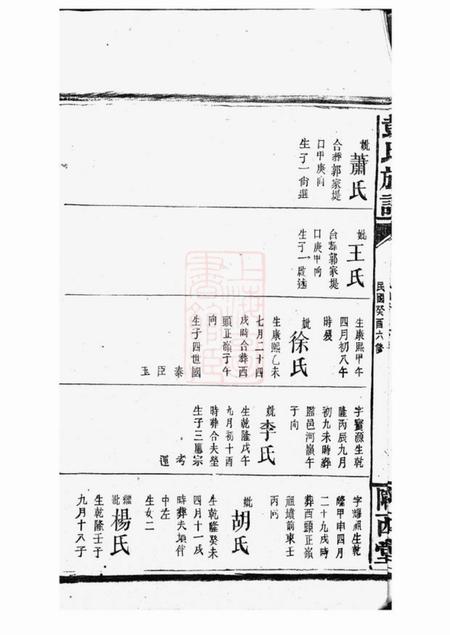 氏族譜
民國癸酉六修
隴西堂
妣蕭氏
合葬郭家堤
口甲庚向
生子一
妣王氏
合葬郭家堤
口庚甲向
生子一啟述
生康熙甲午
四月初八午
時歿
妣徐氏
生康熙乙未
七月二十四
戌時合葬酉
頭正嶺子午
向
生子四世國
泰臣玉
字賓源生乾
隆丙辰九月
初九未時葬
邑河嶺午
子向
妣李氏
生乾隆戊午
九月初十酉
時葬合夫塋
生子三應宗
考還
字耀順生乾
隆甲申四月
二十九戌時
葬酉頭正嶺
祖墳前東壬
丙向
妣胡氏
生乾隆癸未
四月十一戌
時葬夫墳
中左
生女二
繼妣楊氏
生乾隆壬子
九月十八子